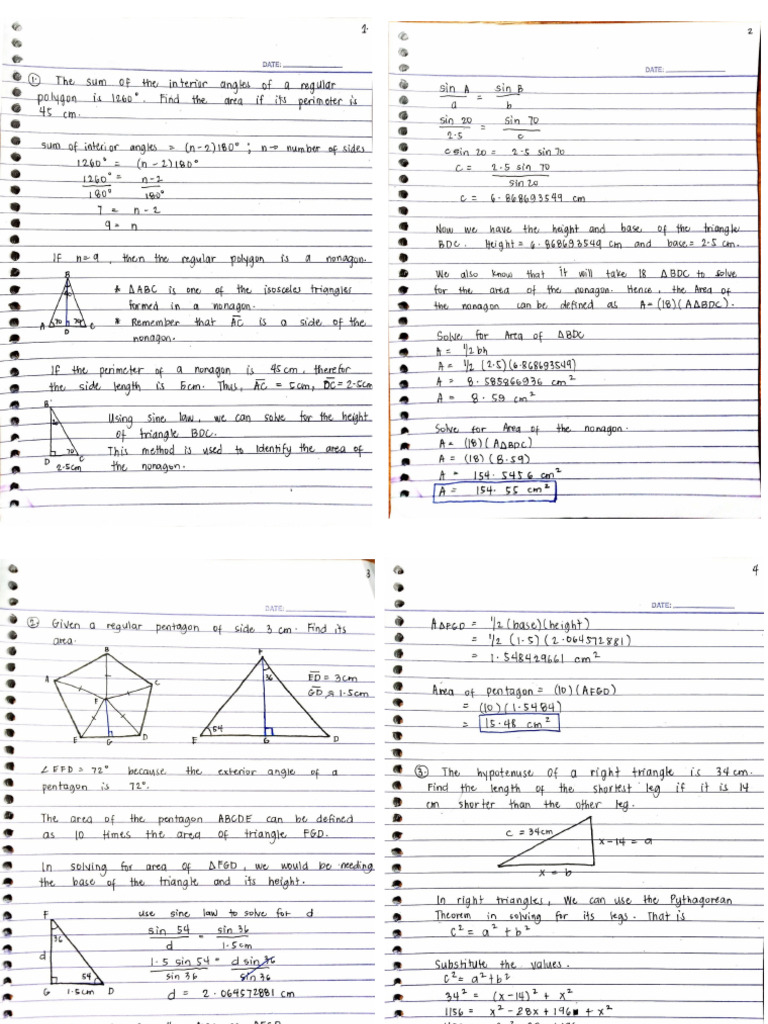 1.
DATE:
① The sum of the interior angles of a regular
polygon is 1260°. Find the area if its perimeter is
45 cm.
sum of interior angles = (n-2)180° ; n→ number of sides
1260° = (n-2)180°
1260° = n-2
180° 180°
7 = n-2
9 = n
If n=9 , then the regular polygon is a nonagon.
B
* ΔABC is one of the isosceles triangles
formed in a nonagon.
A 70 70 C
D
* Remember that AC is a side of the
nonagon.
If the perimeter of a nonagon is 45 cm, therefor
the side length is 5cm. Thus, AC = 5cm, DC = 2.5cm
B
Using sine law, we can solve for the height
of triangle BDC.
70
D C
2.5cm
This method is used to identify the area of
the nonagon.
2
DATE:
sin A = sin B
a b
sin 20 = sin 70
2.5 c
c sin 20 = 2.5 sin 70
c = 2.5 sin 70
sin 20
c = 6.868693549 cm
Now we have the height and base of the triangle
BDC. Height = 6.868693549 cm and base = 2.5 cm.
We also know that it will take 18 ΔBDC to solve
for the area of the nonagon. Hence , the Area of
the nonagon can be defined as A = (18)(AΔBDC).
Solve for Area of ΔBDC
A = 1/2 bh
A = 1/2 (2.5)(6.868693549)
A = 8.585866936 cm²
A = 8.59 cm²
Solve for Area of the nonagon.
A = (18)(AΔBDC)
A = (18)(8.59)
A = 154.5456 cm²
A = 154.55 cm²
3
DATE:
② Given a regular pentagon of side 3 cm. Find its
area.
B
A
C
F
E G D
F
36
ED = 3cm
GD = 1.5cm
54
E G D
∠EFD = 72° because the exterior angle of a
pentagon is 72°.
The area of the pentagon ABCDE can be defined
as 10 times the area of triangle FGD.
In solving for area of ΔFGD , we would be needing
the base of the triangle and its height.
F
use sine law to solve for d
36
sin 54 = sin 36
d 1.5cm
d
1.5 sin 54 = d sin 36
54
sin 36 sin 36
G 1.5cm D
d = 2.064572881 cm
4
DATE:
AΔFGD = 1/2 (base)(height)
= 1/2 (1.5)(2.064572881)
= 1.548429661 cm²
Area of pentagon = (10)(AFGD)
= (10)(1.5484)
= 15.48 cm²
③ The hypotenuse of a right triangle is 34 cm.
Find the length of the shortest leg if it is 14
cm shorter than the other leg.
c = 34cm
x-14 = a
x = b
In right triangles, We can use the Pythagorean
Theorem in solving for its legs. That is
c² = a² + b²
Substitute the values.
c² = a² + b²
34² = (x-14)² + x²
1156 = x² - 28x + 196 + x²